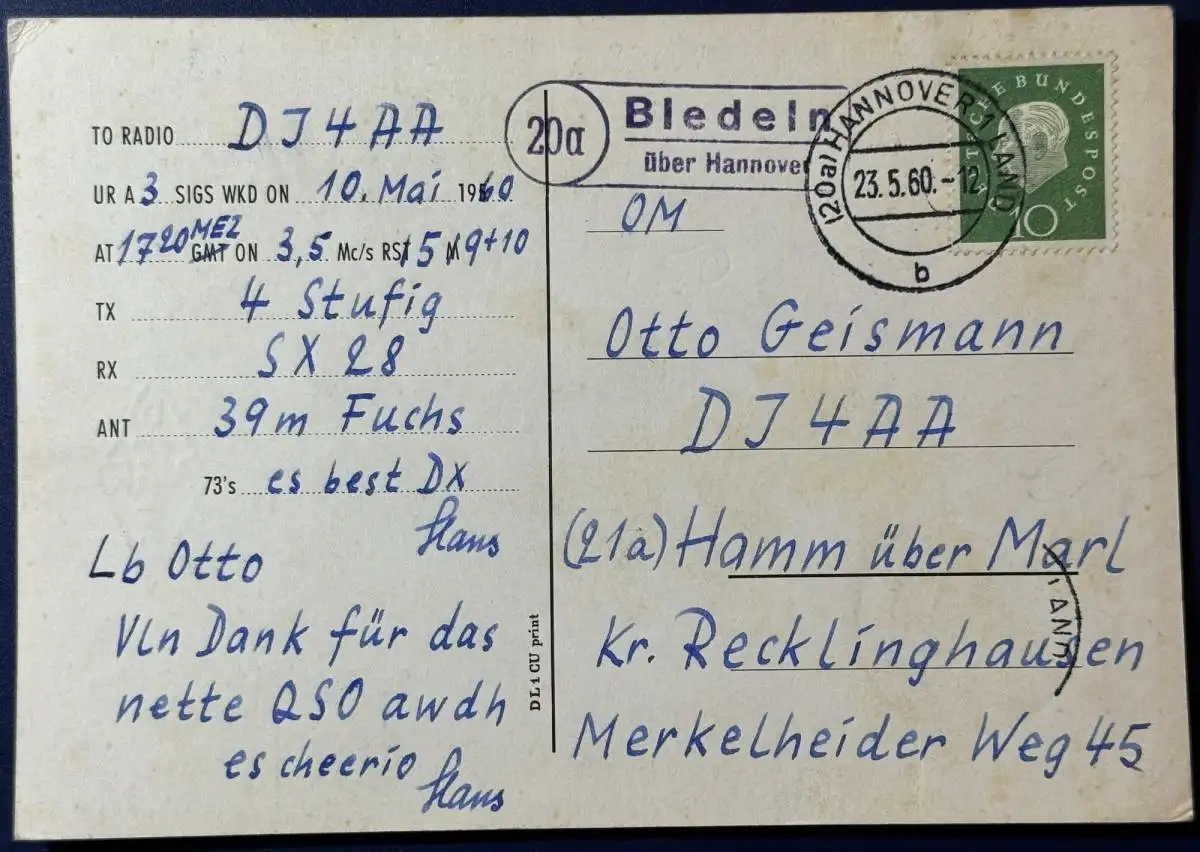 TO RADIO DJ4AA
UR A3 SIGS WKD ON 10. Mai 1960
AT 1720 MEZ GMT ON 3,5 Mc/s RS 5 9+10
TX 4 Stufig
RX SX 28
ANT 39m Fuchs
73's es best DX
Hans
Lb Otto
Vln Dank für das
nette QSO awdh
es cheerio
Hans
DL1CU print
20a
Bledeln
über Hannover
(20a) HANNOVER 1 LAND
23.5.60.-12
b
DEUTSCHE BUNDESPOST
10
OM
Otto Geismann
DJ4AA
(21a) Hamm über Marl
Kr. Recklinghausen
Merkelheider Weg 45